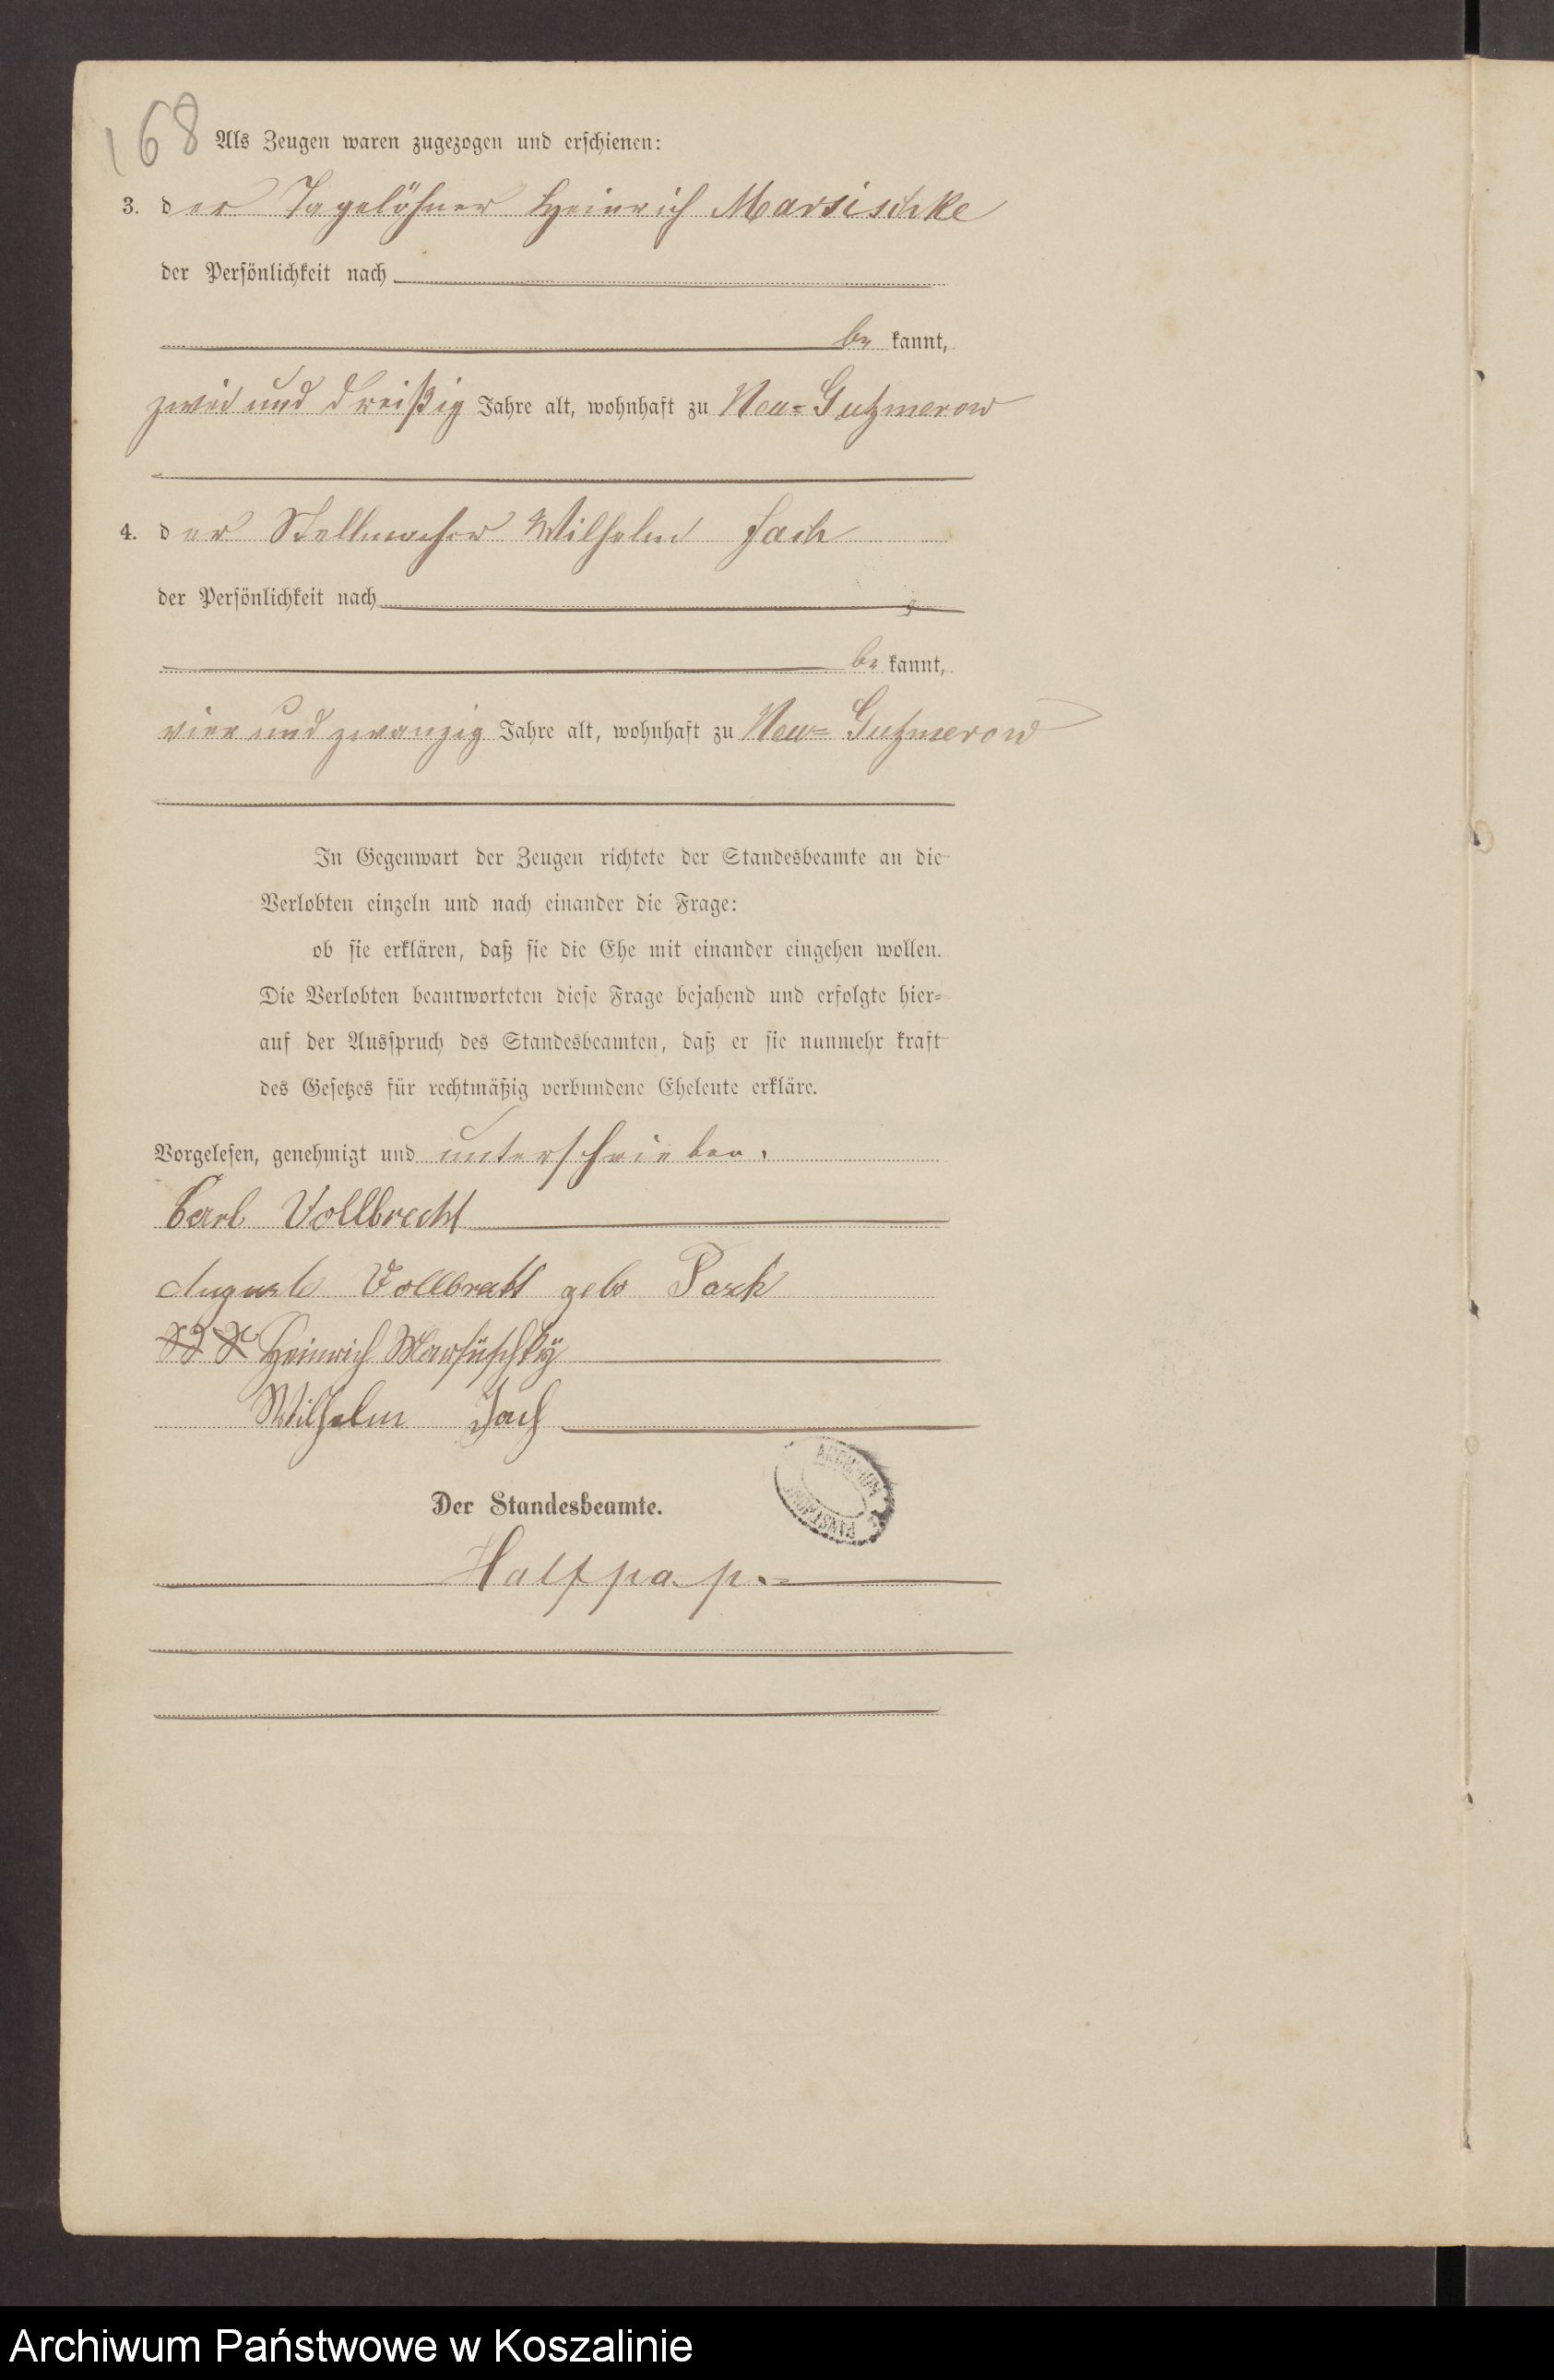 168
Als Zeugen waren zugezogen und erschienen:
3. der Tagelöhner Heinrich Marsischke
der Persönlichkeit nach
be kannt,
zwei und dreißig Jahre alt, wohnhaft zu Neu-Gutzmerow
4. der Stellmacher Wilhelm Jach
der Persönlichkeit nach
be kannt,
vier und zwanzig Jahre alt, wohnhaft zu Neu-Gutzmerow
In Gegenwart der Zeugen richtete der Standesbeamte an die
Verlobten einzeln und nach einander die Frage:
ob sie erklären, daß sie die Ehe mit einander eingehen wollen.
Die Verlobten beantworteten diese Frage bejahend und erfolgte hier-
auf der Ausspruch des Standesbeamten, daß er sie nunmehr kraft
des Gesetzes für rechtmäßig verbundene Eheleute erkläre.
Vorgelesen, genehmigt und unterschrieben.
Carl Vollbrecht
Auguste Vollbrecht geb
Heinrich
Wilhelm Jach
ARCHIWUM PAŃSTWOWE
Der Standesbeamte.
Halfpap.
Archiwum Państwowe w Koszalinie